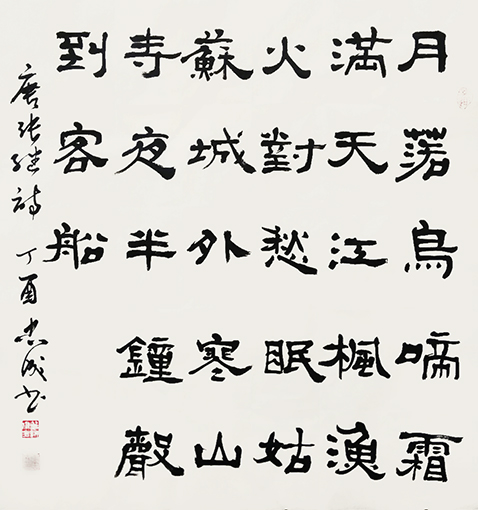 月落烏啼霜
滿天江楓漁
火對愁眠姑
蘇城外寒山
寺夜半鐘聲
到客船
唐張繼詩 丁酉 成書